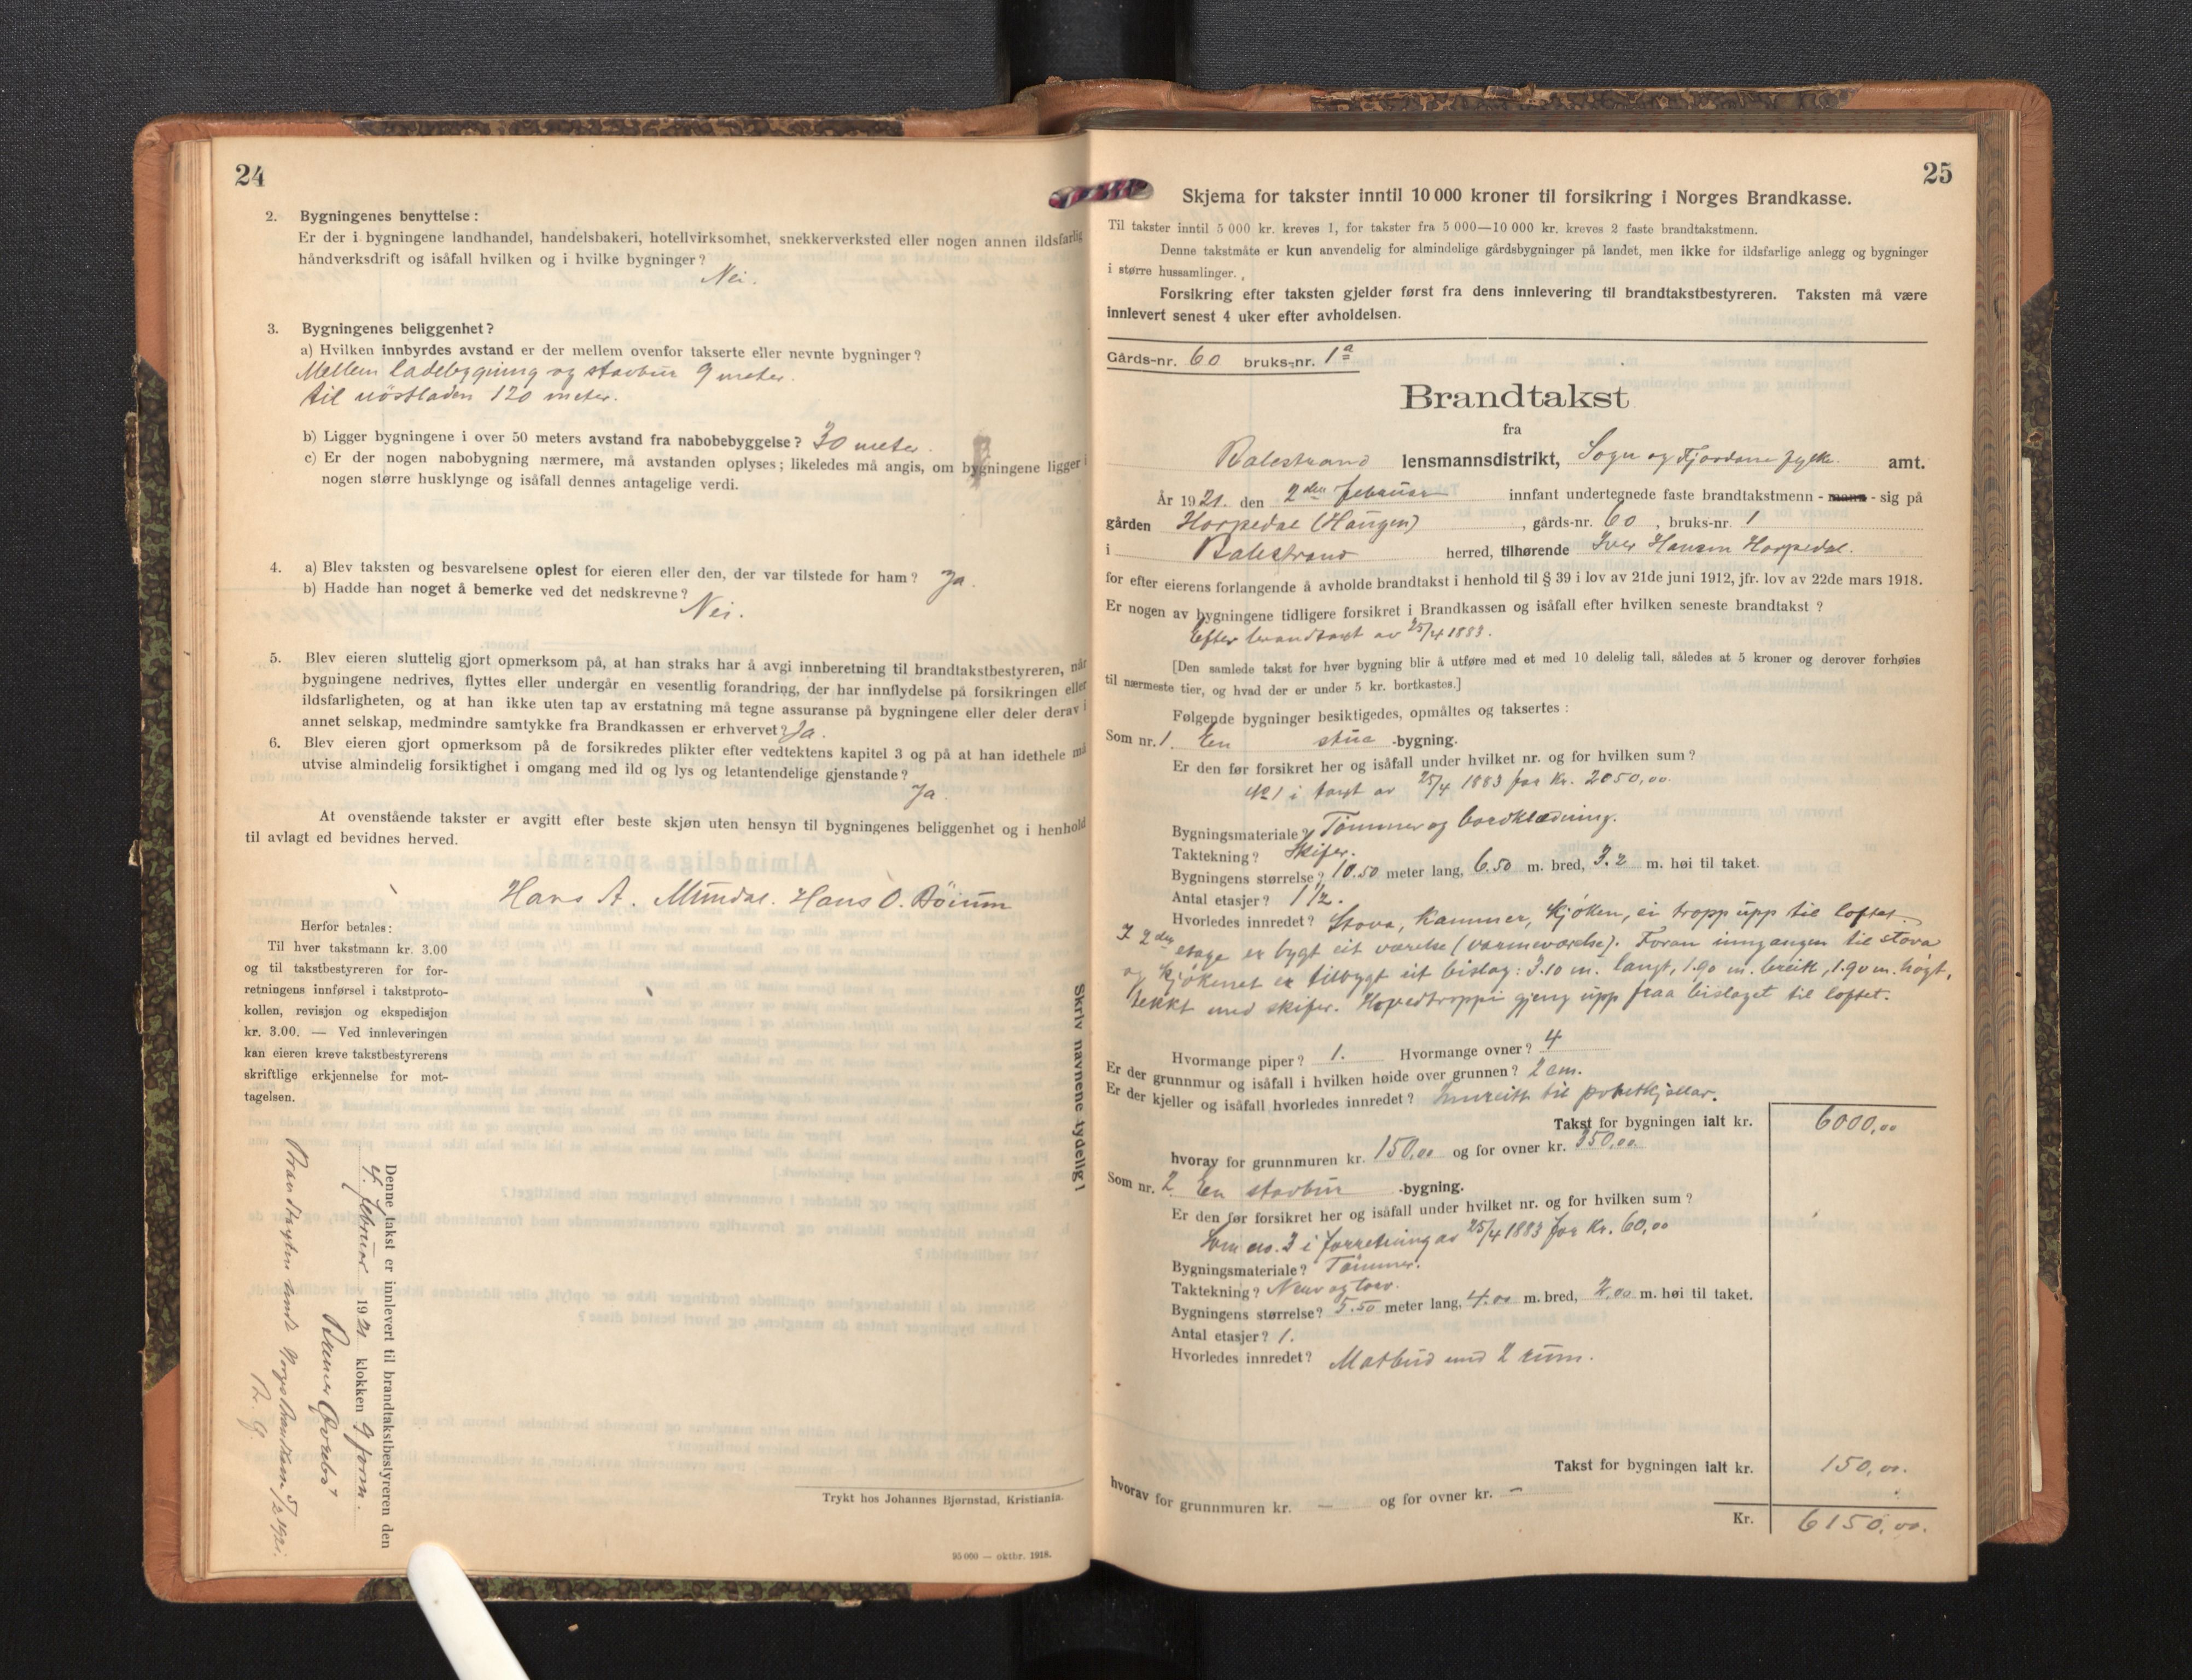 24
2. Bygningenes benyttelse:
Er der i bygningene landhandel, handelsbakeri, hotellvirksomhet, snekkerverksted eller nogen annen ildsfarlig
håndverksdrift og isåfall hvilken og i hvilke bygninger?
Nei.
3. Bygningenes beliggenhet?
a) Hvilken innbyrdes avstand er der mellem ovenfor takserte eller nevnte bygninger?
Mellem ladebygning og stavbur 9 meter.
til nöstladen 120 meter.
b) Ligger bygningene i over 50 meters avstand fra nabobebyggelse? 30 meter.
c) Er der nogen nabobygning nærmere, må avstanden oplyses; likeledes må angis, om bygningene ligger i
nogen større husklynge og isåfall dennes antagelige verdi.
4. a) Blev taksten og besvarelsene oplest for eieren eller den, der var tilstede for ham? Ja.
b) Hadde han noget å bemerke ved det nedskrevne?
Nei.
5. Blev eieren sluttelig gjort opmerksom på, at han straks har å avgi innberetning til brandtakstbestyreren, når
bygningene nedrives, flyttes eller undergår en vesentlig forandring, der har innflydelse på forsikringen eller
ildsfarligheten, og at han ikke uten tap av erstatning må tegne assuranse på bygningene eller deler derav i
annet selskap, medmindre samtykke fra Brandkassen er erhvervet? Ja.
6. Blev eieren gjort opmerksom på de forsikredes plikter efter vedtektens kapitel 3 og på at han idethele må
utvise almindelig forsiktighet i omgang med ild og lys og letantendelige gjenstande?
Ja.
At ovenstående takster er avgitt efter beste skjøn uten hensyn til bygningenes beliggenhet og i henhold
til avlagt ed bevidnes herved.
Hans A. Mundal. Hans O. Böium
Herfor betales:
Til hver takstmann kr. 3.00
og til takstbestyreren for for-
retningens innførsel i takstproto-
kollen, revisjon og ekspedisjon
kr. 3.00. — Ved innleveringen
kan eieren kreve takstbestyrerens
skriftlige erkjennelse for mot-
tagelsen.
Skriv navnene tydelig!
Denne takst er innlevert til brandtakstbestyreren den
4. februar 1921 klokken 9 form.
Brandtaxten sendt Norges Brandkasse 5/2 1921.
Trykt hos Johannes Bjørnstad, Kristiania.
95 000 — oktbr. 1918.
25
Skjema for takster inntil 10 000 kroner til forsikring i Norges Brandkasse.
Til takster inntil 5 000 kr. kreves 1, for takster fra 5 000—10 000 kr. kreves 2 faste brandtakstmenn.
Denne takstmåte er kun anvendelig for almindelige gårdsbygninger på landet, men ikke for ildsfarlige anlegg og bygninger
i større hussamlinger.
Forsikring efter taksten gjelder først fra dens innlevering til brandtakstbestyreren. Taksten må være
innlevert senest 4 uker efter avholdelsen.
Gårds-nr. 60 bruks-nr. 1a
Brandtakst
fra
Balestrand lensmannsdistrikt, Sogn og Fjordane fylke. amt.
År 1921. den 2den februar innfant undertegnede faste brandtakstmenn - mann - sig på
gården Horpedal (Haugen), gårds-nr. 60, bruks-nr. 1
i Balestrand herred, tilhørende Iver Hansen Horpedal.
for efter eierens forlangende å avholde brandtakst i henhold til § 39 i lov av 21de juni 1912, jfr. lov av 22de mars 1918.
Er nogen av bygningene tidligere forsikret i Brandkassen og isåfall efter hvilken seneste brandtakst?
Efter brandtaxt av 25/4 1883.
[Den samlede takst for hver bygning blir å utføre med et med 10 delelig tall, således at 5 kroner og derover forhøies
til nærmeste tier, og hvad der er under 5 kr. bortkastes.]
Følgende bygninger besiktigedes, opmåltes og taksertes:
Som nr. 1. En stue -bygning.
Er den før forsikret her og isåfall under hvilket nr. og for hvilken sum?
No 1 i taxt av 25/4 1883 for Kr. 2050,00.
Bygningsmateriale? Tømmer og bordklædning.
Taktekning? Skifer.
Bygningens størrelse? 10.50 meter lang, 6.50 m. bred, 3.2 m. høi til taket.
Antal etasjer? 1 1/2.
Hvorledes innredet? Stova, Kammer, Kjøken, ei tropp upp til loftet.
I 2den etage er bygt eit værelse (varmeværelse). Foran inngangen til stova
og kjökenet er tilbygt eit bislag: 3.10 m. langt, 1.90 m. breitt, 1.90 m. högt,
tekkt med skifer. Hovedtroppi gjeng upp fraa bislaget til loftet.
Hvormange piper? 1. Hvormange ovner? 4
Er der grunnmur og isåfall i hvilken høide over grunnen? 2 em.
Er der kjeller og isåfall hvorledes innredet? Innreitt til potetkjellar.
Takst for bygningen ialt kr. 6000,00
hvorav for grunnmuren kr. 150,00 og for ovner kr. 350,00.
Som nr. 2. En stavbur -bygning.
Er den før forsikret her og isåfall under hvilket nr. og for hvilken sum?
Som no. 3 i forretning av 25/4 1883 for Kr. 60,00
Bygningsmateriale? Tømmer.
Taktekning? Never og torv.
Bygningens størrelse? 5.50 meter lang, 4.00 m. bred, 2,00 m. høi til taket.
Antal etasjer? 1.
Hvorledes innredet? Matbud med 2 rum.
Takst for bygningen ialt kr. 150,00.
hvorav for grunnmuren kr. — og for ovner kr. —
Kr. 6150,00.